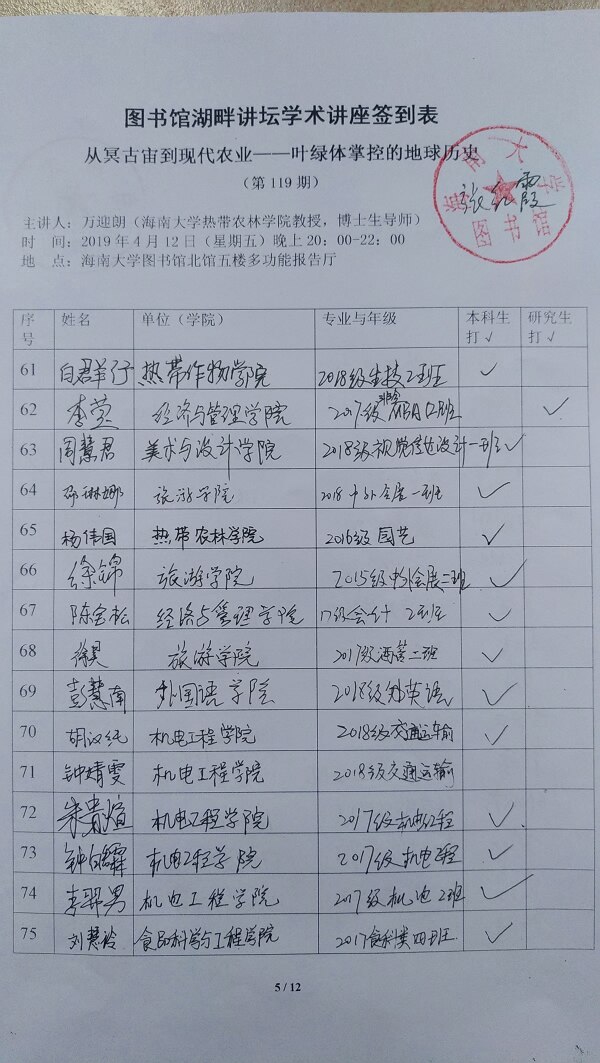 图书馆湖畔讲坛学术讲座签到表
从冥古宙到现代农业——叶绿体掌控的地球历史
（第119期）
海南大学
图书馆
张红霞
主讲人：万迎朗（海南大学热带农林学院教授，博士生导师）
时 间：2019年4月12日（星期五）晚上20：00-22：00
地 点：海南大学图书馆北馆五楼多功能报告厅
序号 姓名 单位（学院） 专业与年级 本科生打√ 研究生打√
61 白君 热带作物学院 2018级生技2班 √
62 李英 经济与管理学院 2017级 √
63 周慧君 美术与设计学院 2018级视觉传达设计一班 √
64 邵琳娜 旅游学院 2018中外会展一班 √
65 杨伟国 热带农林学院 2016级园艺 √
66 徐锦 旅游学院 2015级 会展二班 √
67 陈宝松 经济与管理学院 17级会计2班 √
68 徐昊 旅游学院 2017级酒管二班 √
69 彭慧南 外国语学院 2018级 英语 √
70 胡汉纯 机电工程学院 2018级交通运输 √
71 钟婧雯 机电工程学院 2018级交通运输
72 朱贵煊 机电工程学院 2017级机电工程 √
73 钟 霖 机电工程学院 2017级机电工程 √
74 李羿男 机电工程学院 2017级机电2班 √
75 刘慧玲 食品科学与工程学院 2017食科类四班 √
5 / 12